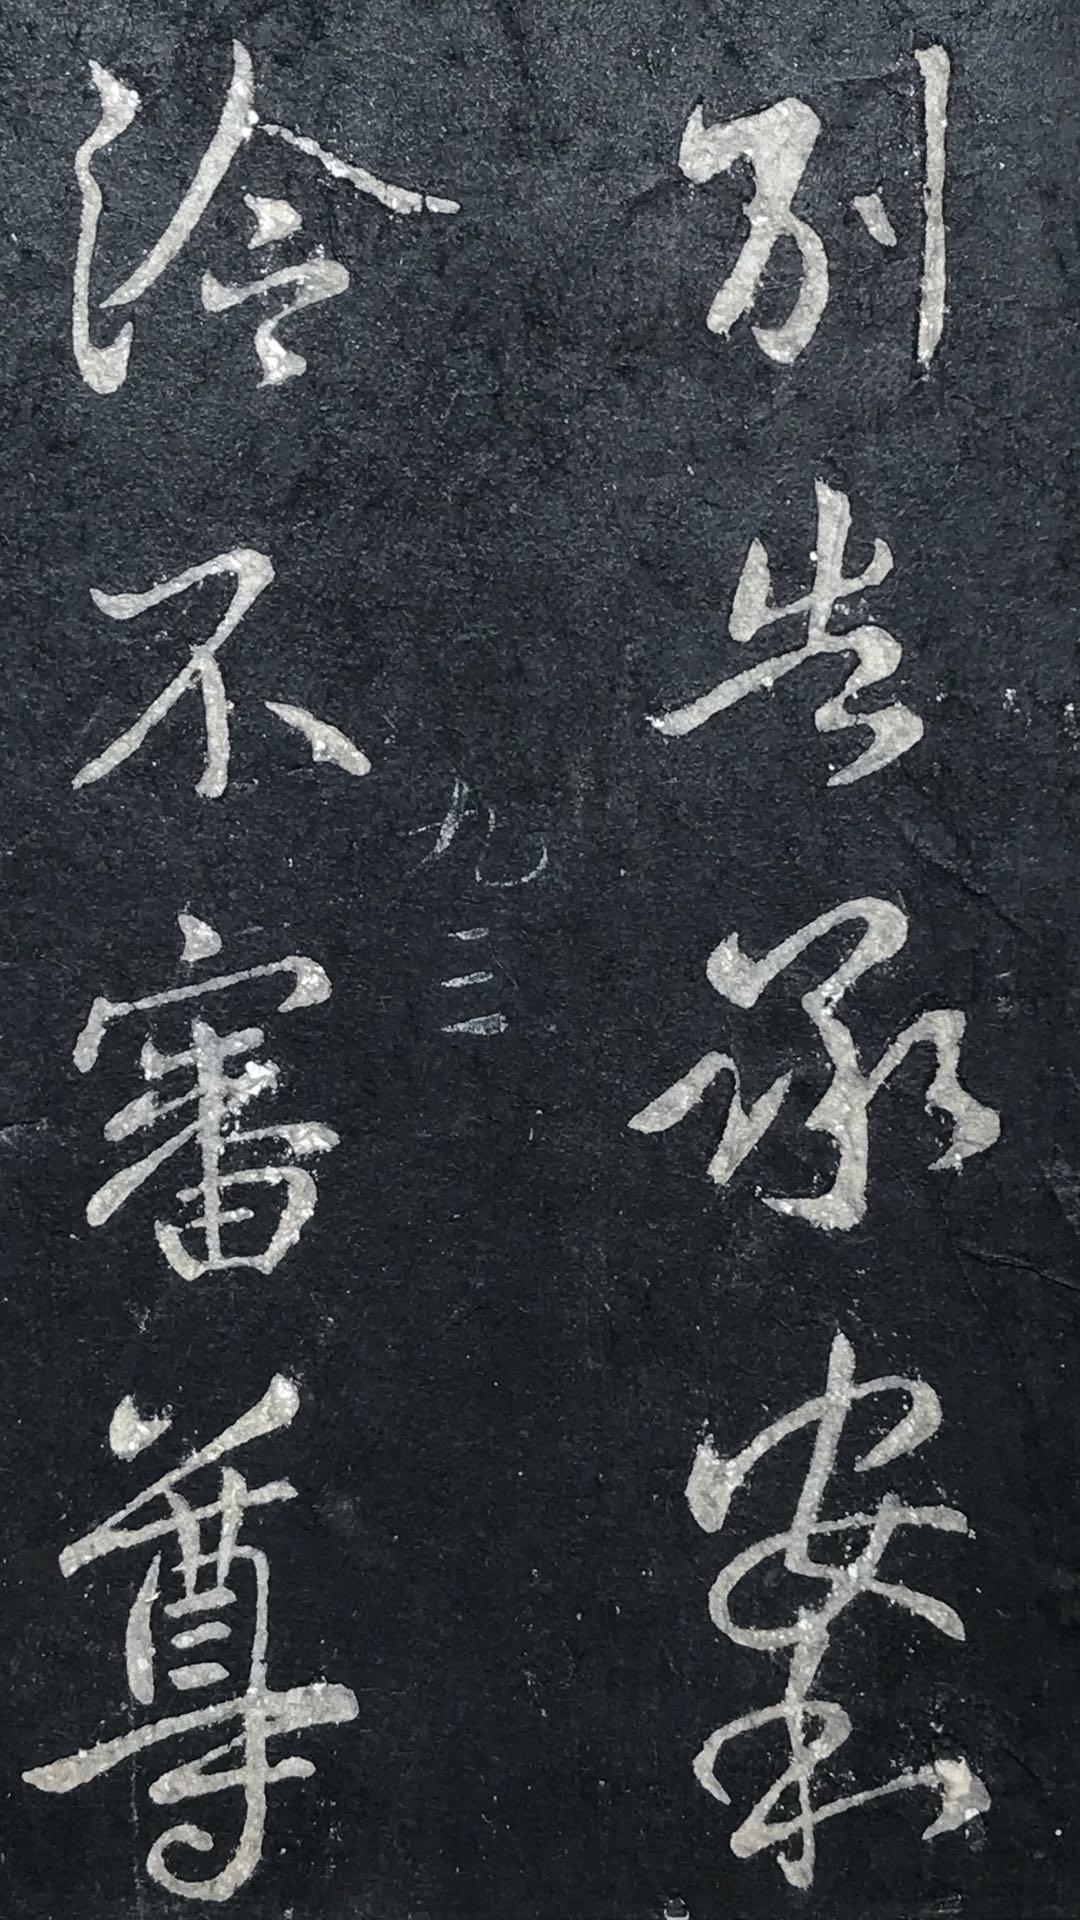 別告承安和
九三
冷不審尊